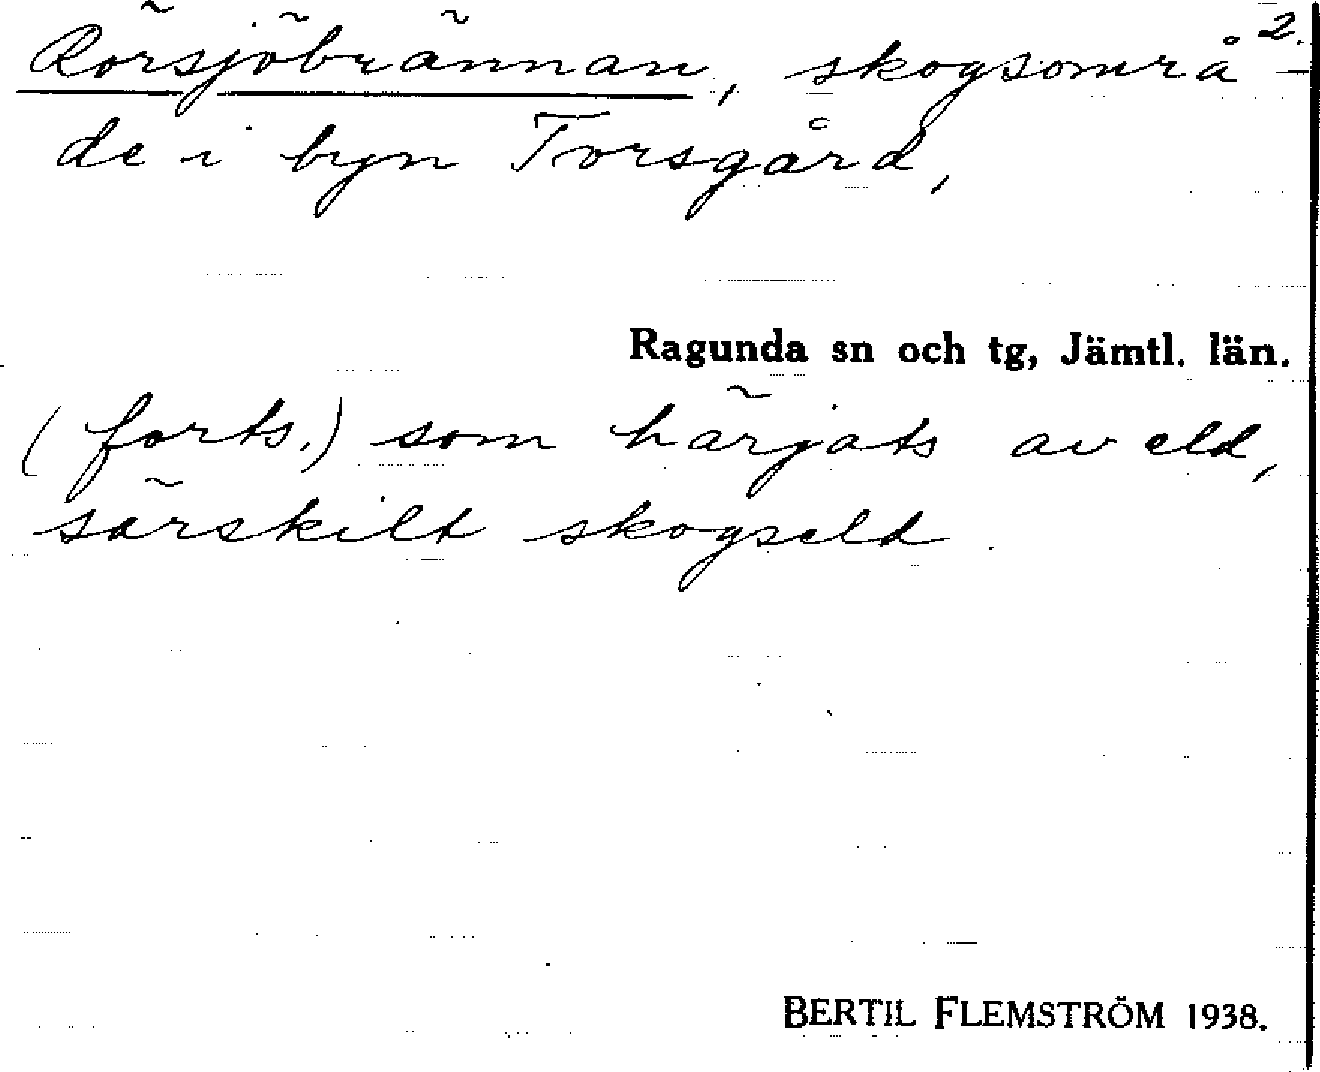 2.
Rörsjöbrännan, skogsområ-
de i byn Torsgård,
Ragunda sn och tg, Jämtl. län.
(forts.) som härjats av eld,
särskilt skogseld.
BERTIL FLEMSTRÖM 1938.